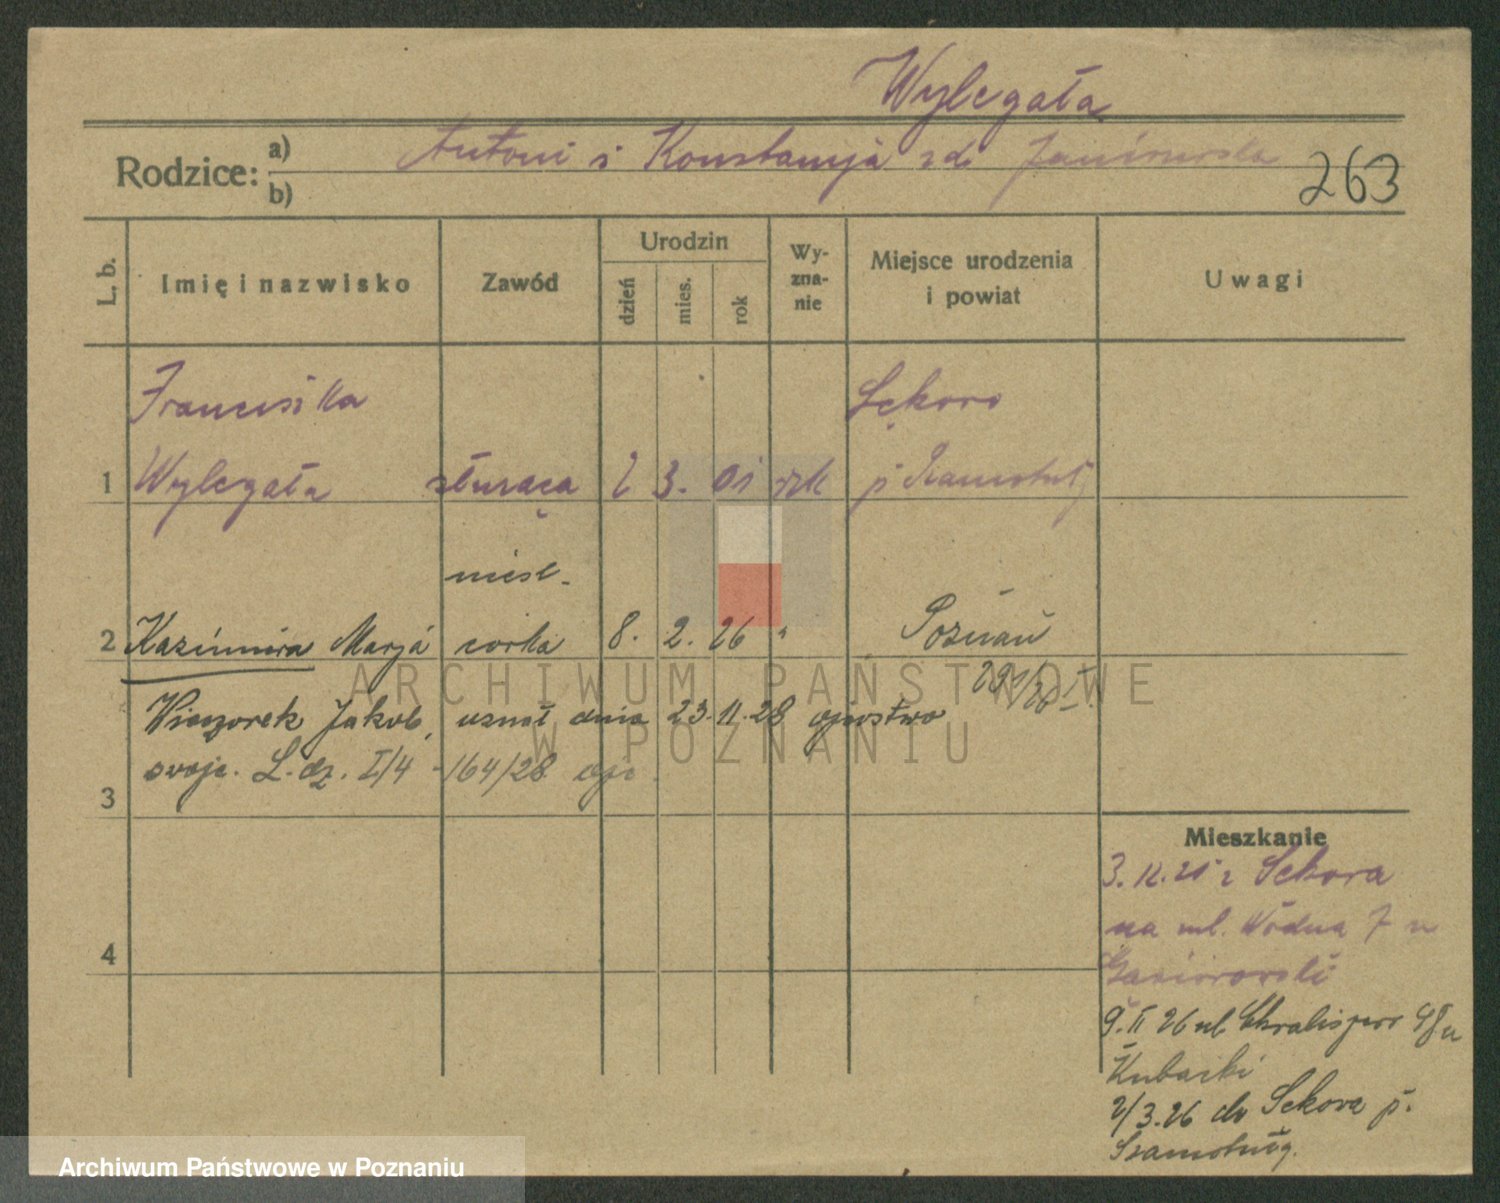 Wylegała
Rodzice: a) Antoni i Konstancja zd. Janiszewska
b)
263
L. b. Imię i nazwisko Zawód Urodzin dzień mies. rok Wy-zna-nie Miejsce urodzenia i powiat Uwagi
Franciszka Sękowo
1 Wylegała służąca 2 3. 01 rzk p Szamotuły
nieśl.
2 Kazimiera Marja córka 8. 2. 26 " Poznań
291/26 I.
Wieczorek Jakob, uznał dnia 23.11.28 ojcostwo
swoje. L. dz. I/4 - 164/28 ojc.
3
Mieszkanie
3. 12. 25 z Sekowa
na ul. Wodna 7 u
4
Gąsiorowski
9. II 26 ul. Chwaliszewo u
Kubacki
2/3.26 do Sekowa p.
Szamotuły.
ARCHIWUM PAŃSTWOWE
W POZNANIU
Archiwum Państwowe w Poznaniu